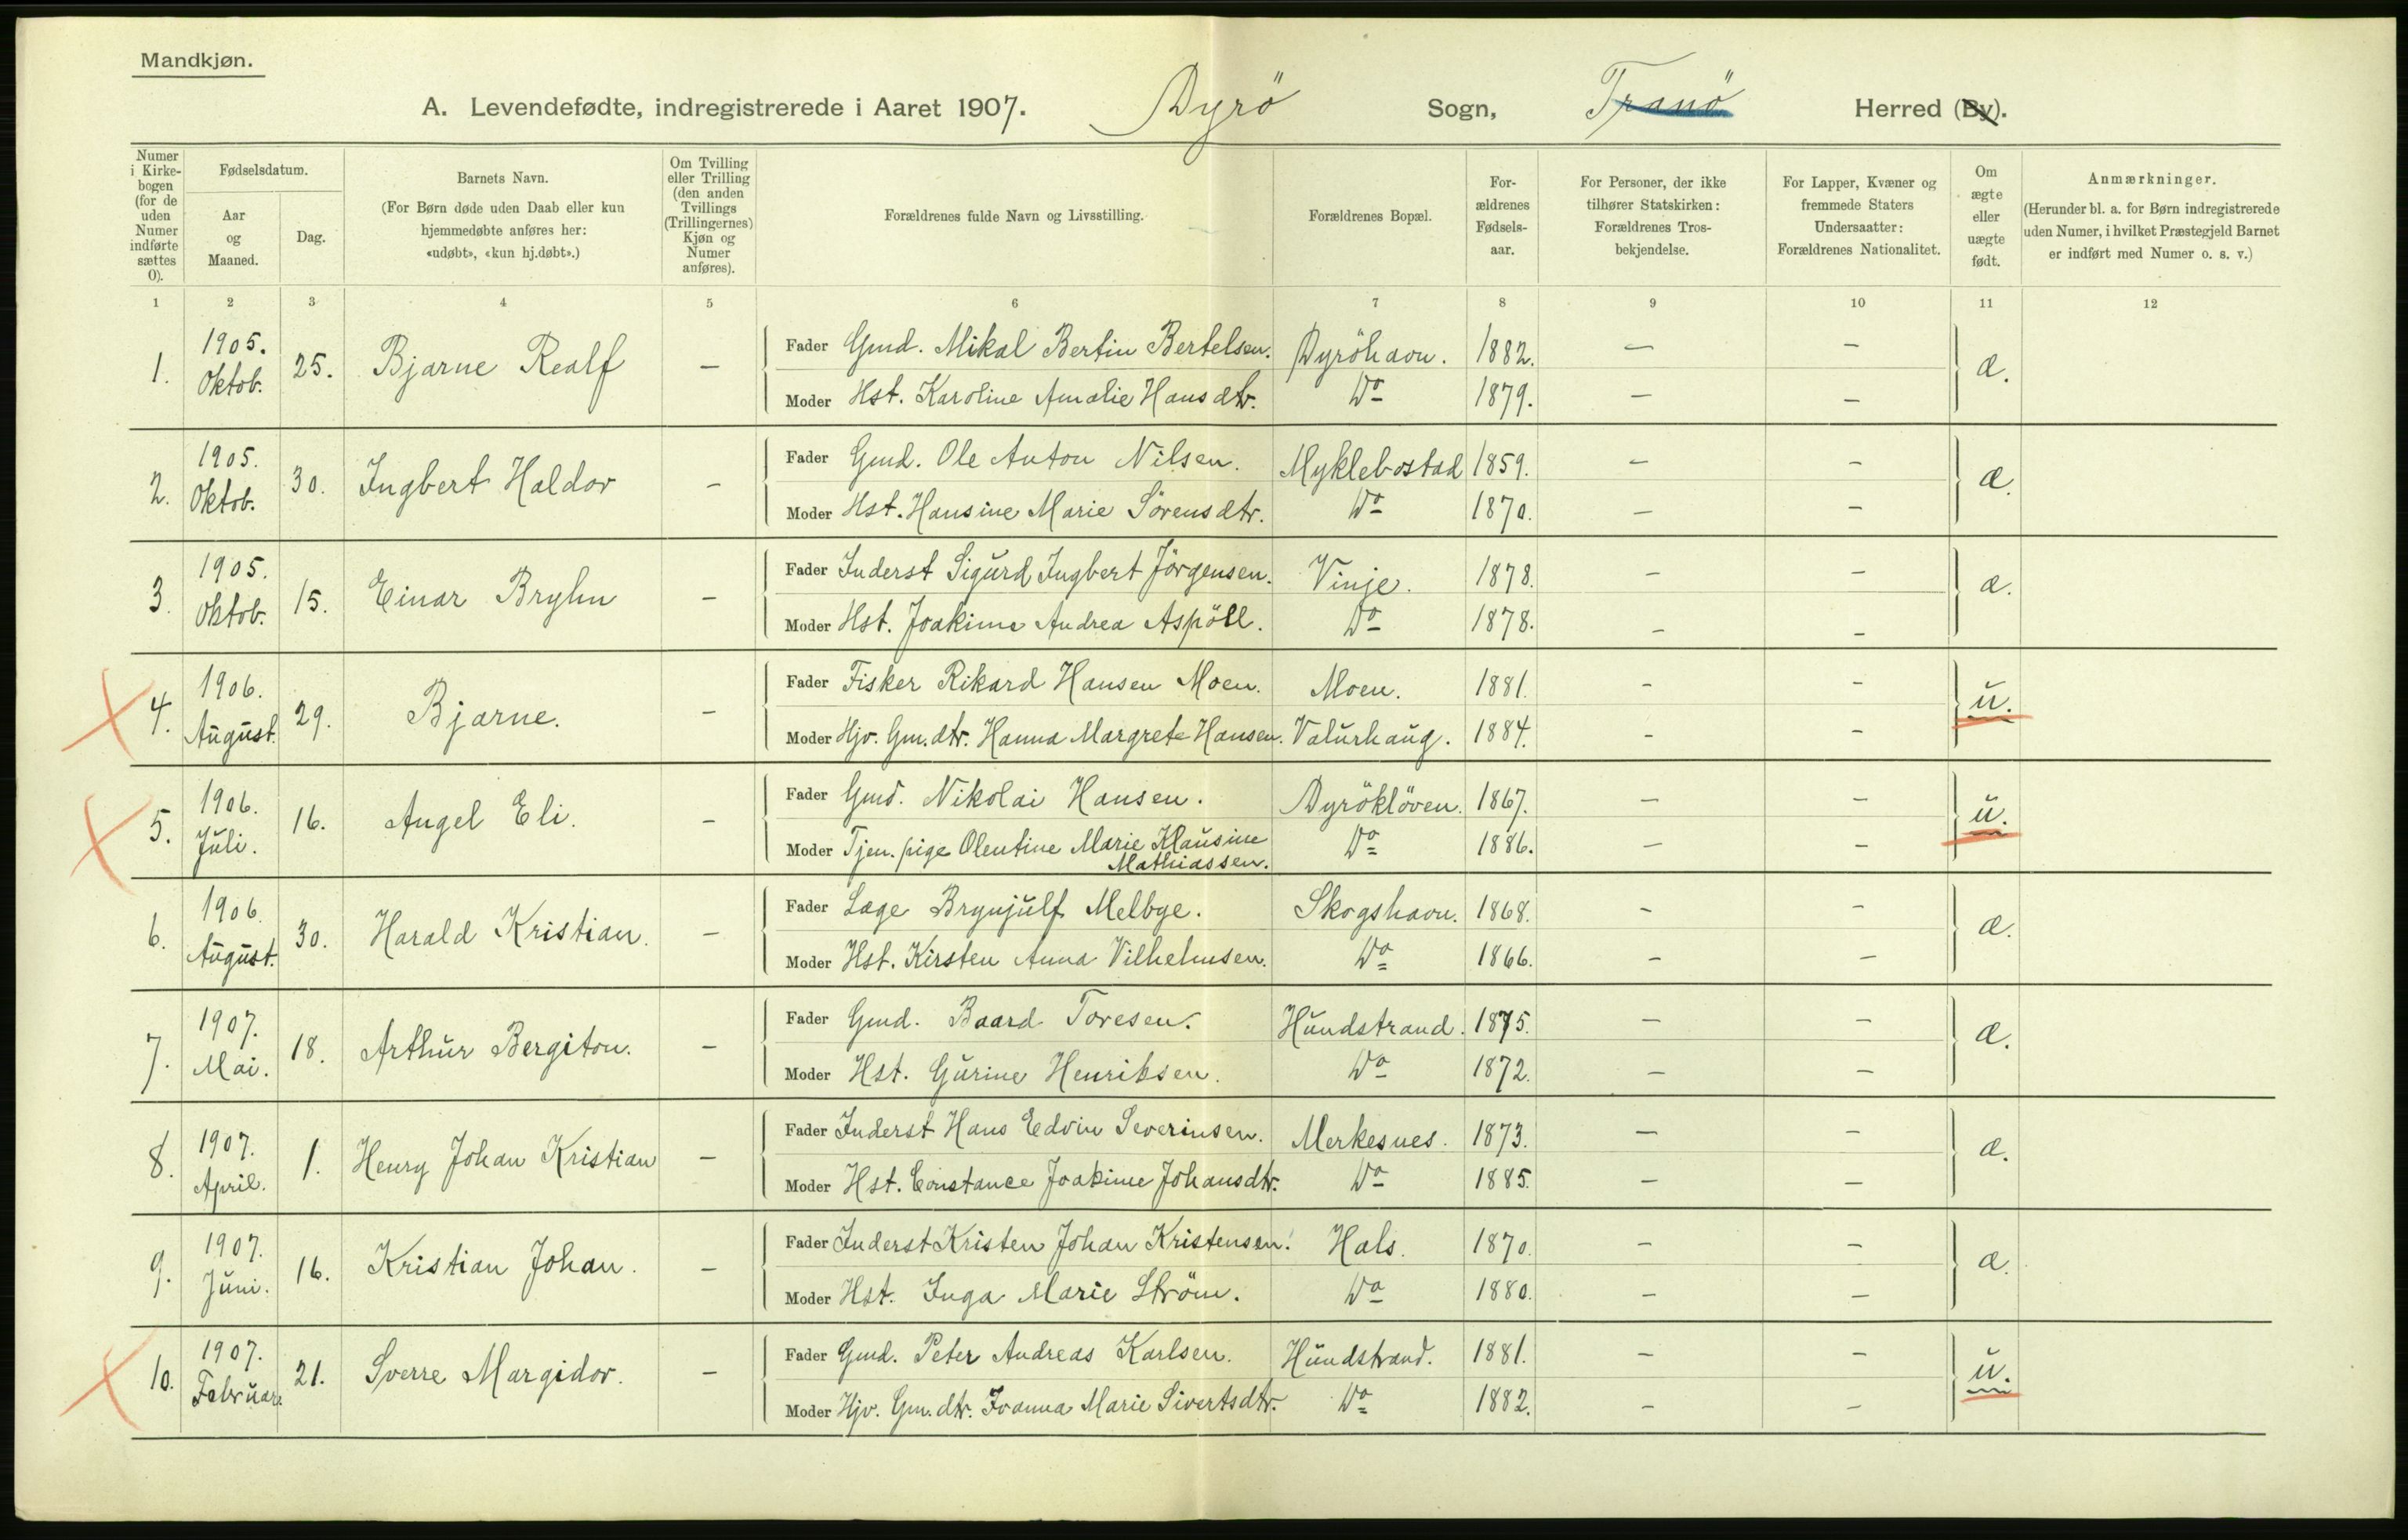 Mandkjøn.
A. Levendefødte, indregistrerede i Aaret 1907. Dyrö Sogn, Tranö Herred (By).
Numer i Kirkebogen (for de uden Numer indførte sættes 0).
Fødselsdatum.
Aar og Maaned.
Dag.
Barnets Navn.
(For Børn døde uden Daab eller kun hjemmedøbte anføres her: «udøbt», «kun hj.døbt».)
Om Tvilling eller Trilling (den anden Tvillings (Trillingernes) Kjøn og Numer anføres).
Forældrenes fulde Navn og Livsstilling.
Forældrenes Bopæl.
Forældrenes Fødselsaar.
For Personer, der ikke tilhører Statskirken: Forældrenes Trosbekjendelse.
For Lapper, Kvæner og fremmede Staters Undersaatter: Forældrenes Nationalitet.
Om ægte eller uægte født.
Anmærkninger.
(Herunder bl. a. for Børn indregistrerede uden Numer, i hvilket Præstegjeld Barnet er indført med Numer o. s. v.)
1 2 3 4 5 6 7 8 9 10 11 12
1. 1905. Oktob. 25. Bjarne Realf —
Fader Gmd. Mikal Bertin Bertelsen. Dyröhavn. 1882. — — æ.
Moder Hst. Karoline Amalie Hansdtr. Do 1879. — —
2. 1905. Oktob. 30. Ingbert Haldor —
Fader Gmd. Ole Anton Nilsen. Myklebostad 1859. — — æ.
Moder Hst. Hansine Marie Sörensdtr. Do 1870. — —
3. 1905. Oktob. 15. Einar Bryhn —
Fader Inderst Sigurd Ingbert Jörgensen. Vinje. 1878. — — æ.
Moder Hst. Joakime Andrea Aspöll. Do 1878. — —
4. 1906. August. 29. Bjarne. —
Fader Fisker Rikard Hansen Moen. Moen. 1881. — — u.
Moder Hjv. Gm.dtr. Hanna Margrete Hansen. Valurhaug. 1884. — —
5. 1906. Juli. 16. Angel Eli. —
Fader Gmd. Nikolai Hansen. Dyröklöven. 1867. — — u.
Moder Tjen.pige Olentine Marie Klausine Mathiassen. Do 1886. — —
6. 1906. August. 30. Harald Kristian. —
Fader Læge Brynjulf Melbye. Skogshavn. 1868. — — æ.
Moder Hst. Kirsten Anna Vilhelmsen. Do 1866. — —
7. 1907. Mai. 18. Arthur Bergiton. —
Fader Gmd. Baard Toresen. Hundstrand. 1875. — — æ.
Moder Hst. Gurine Henriksen. Do 1872. — —
8. 1907. April. 1. Henry Johan Kristian —
Fader Inderst Hans Edvin Severinsen. Merkesnes. 1873. — — æ.
Moder Hst. Constance Joakime Johansdtr. Do 1885. — —
9. 1907. Juni. 16. Kristian Johan. —
Fader Inderst Kristen Johan Kristensen. Hals. 1870. — — æ.
Moder Hst. Inga Marie Ström. Do 1880. — —
10. 1907. Februar. 21. Sverre Margidor. —
Fader Gmd. Peter Andreas Karlsen. Hundstrand. 1881. — — u.
Moder Hjv. Gm.dtr. Ivanna Marie Sivertsdtr. Do 1882. — —